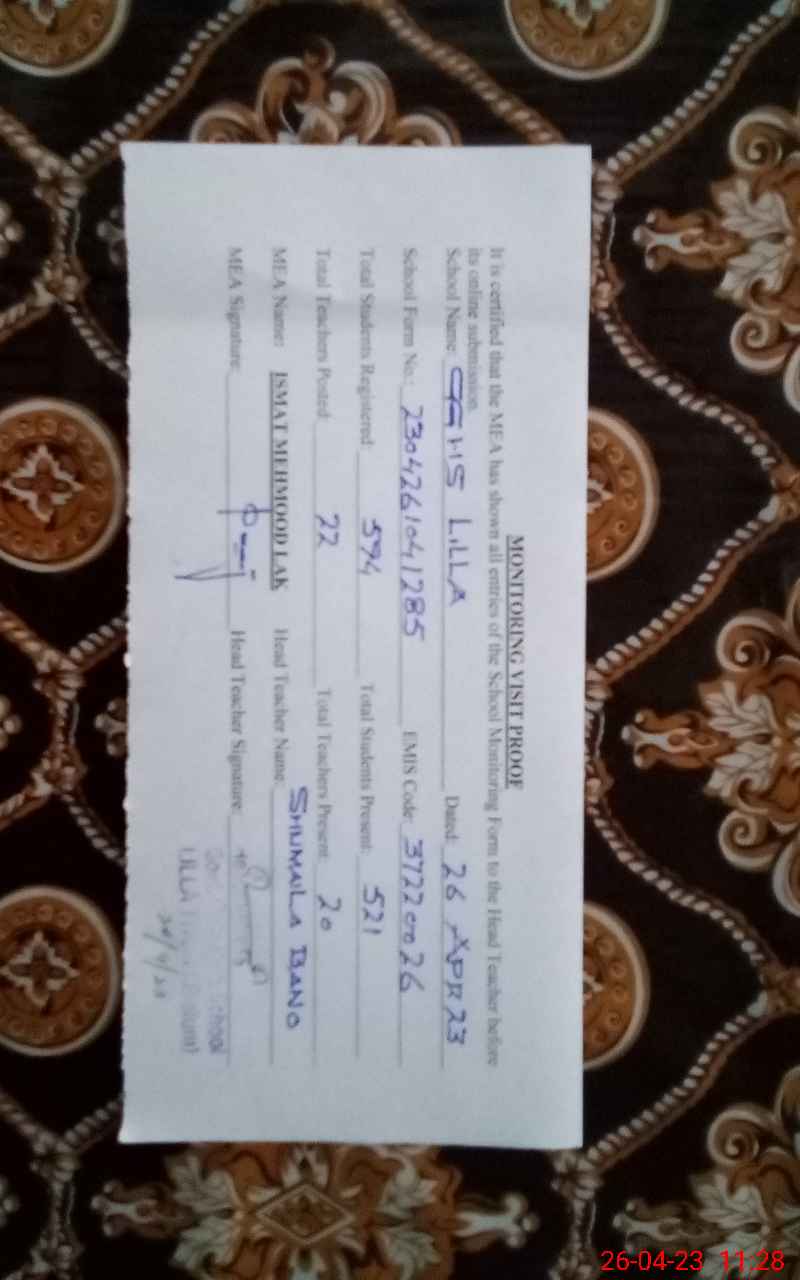 MONITORING VISIT PROOF
It is certified that the MEA has shown all entries of the School Monitoring Form to the Head Teacher before
its online submission.
School Name: GGHS LILLA Dated: 26 APR 23
School Form No.: 2304261041285 EMIS Code: 37220026
Total Students Registered: 594 Total Students Present: 521
Total Teachers Posted: 22 Total Teachers Present: 20
MEA Name: ISMAT MEHMOOD LAK Head Teacher Name: SHUMAILA BANO
MEA Signature: Head Teacher Signature:
School
LILLA
26-04-23 11:28